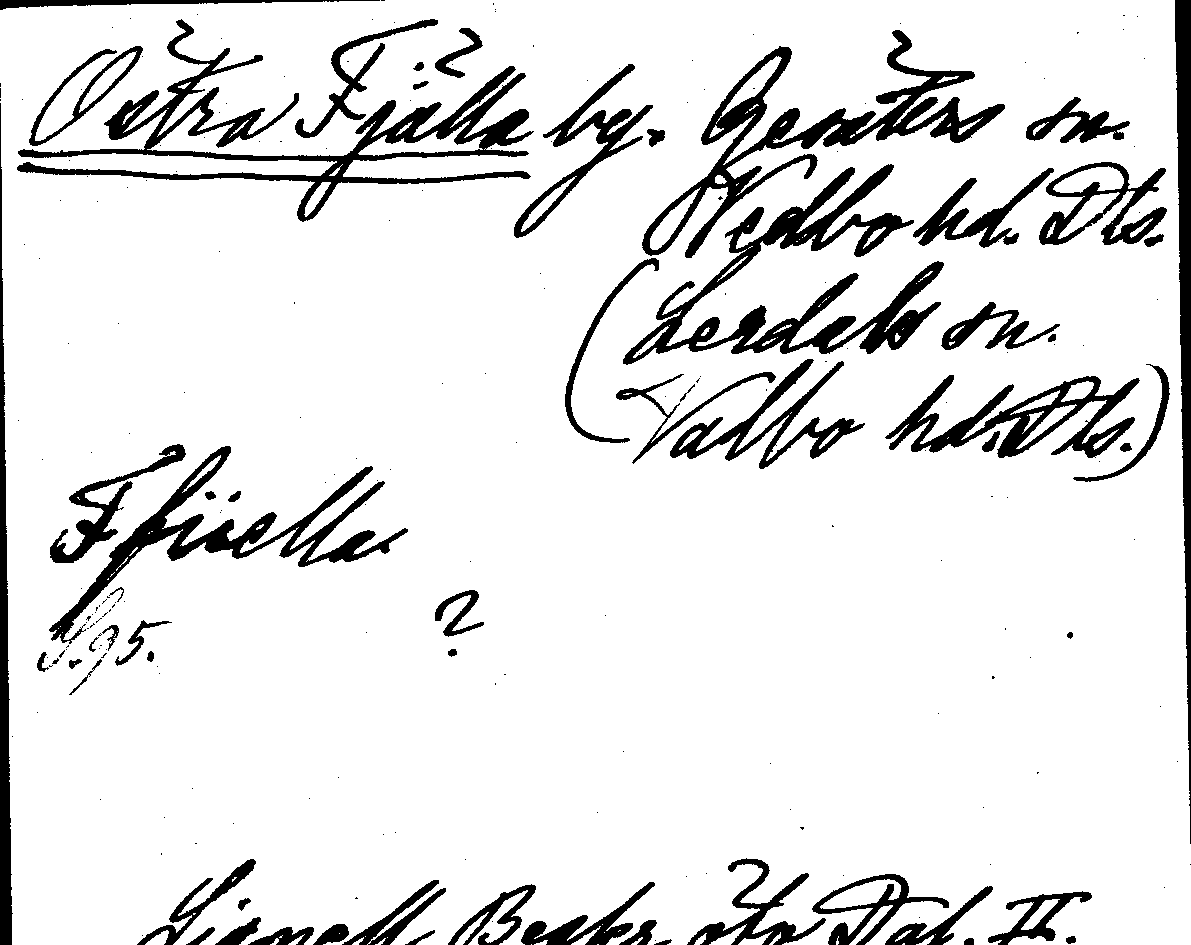 Östra Fjälla by. Gesäters sn.
Nedbo hd. Dls.
(Lerdals sn.
Valbo hd. Dls.)
Fjiœlla.
S. 95. ?
Lignell Beskr. öfv. Dal. II.